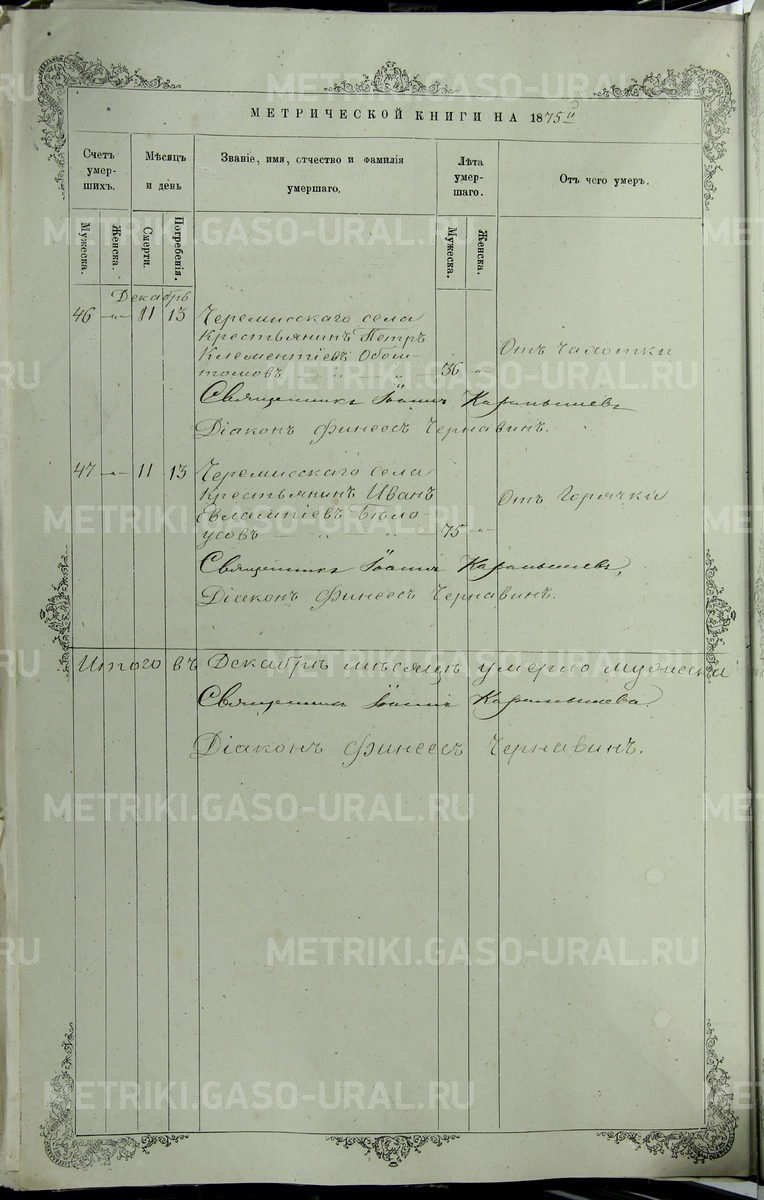 МЕТРИЧЕСКОЙ КНИГИ НА 1875 й
Счетъ умер- шихъ.
Мѣсяцъ и день
Званіе, имя, отчество и фамилія умершаго.
Лѣта умер- шаго.
Отъ чего умеръ.
Мужеска.
Женска.
Смерти.
Погребенія.
Мужеска.
Женска.
Декабрь
46 -"- 11 13 Черемисскаго села
Крестьянинъ Петръ
Клементіевъ Обош-
томовъ " " 36 " Отъ Чахотки
Священникъ Іоаннъ Карамышевъ
Діаконъ Финеесъ Чернавинъ.
47 -"- 11 13 Черемисскаго села
Крестьянинъ Иванъ
Евлампіевъ Бѣло-
усовъ " " 75 -"- Отъ Горячки
Священникъ Іоаннъ Карамышевъ,
Діаконъ Финеесъ Чернавинъ.
Итого въ Декабрѣ мѣсяцѣ умерло мужеска
Священникъ Іоаннъ Карамышевъ
Діаконъ Финеесъ Чернавинъ.
METRIKI.GASO-URAL.RU